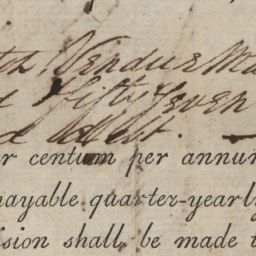 th, Vendue Ma
d fifty Seven
d debt.
r centum per annu
payable quarter-yearly
ision shall be made t